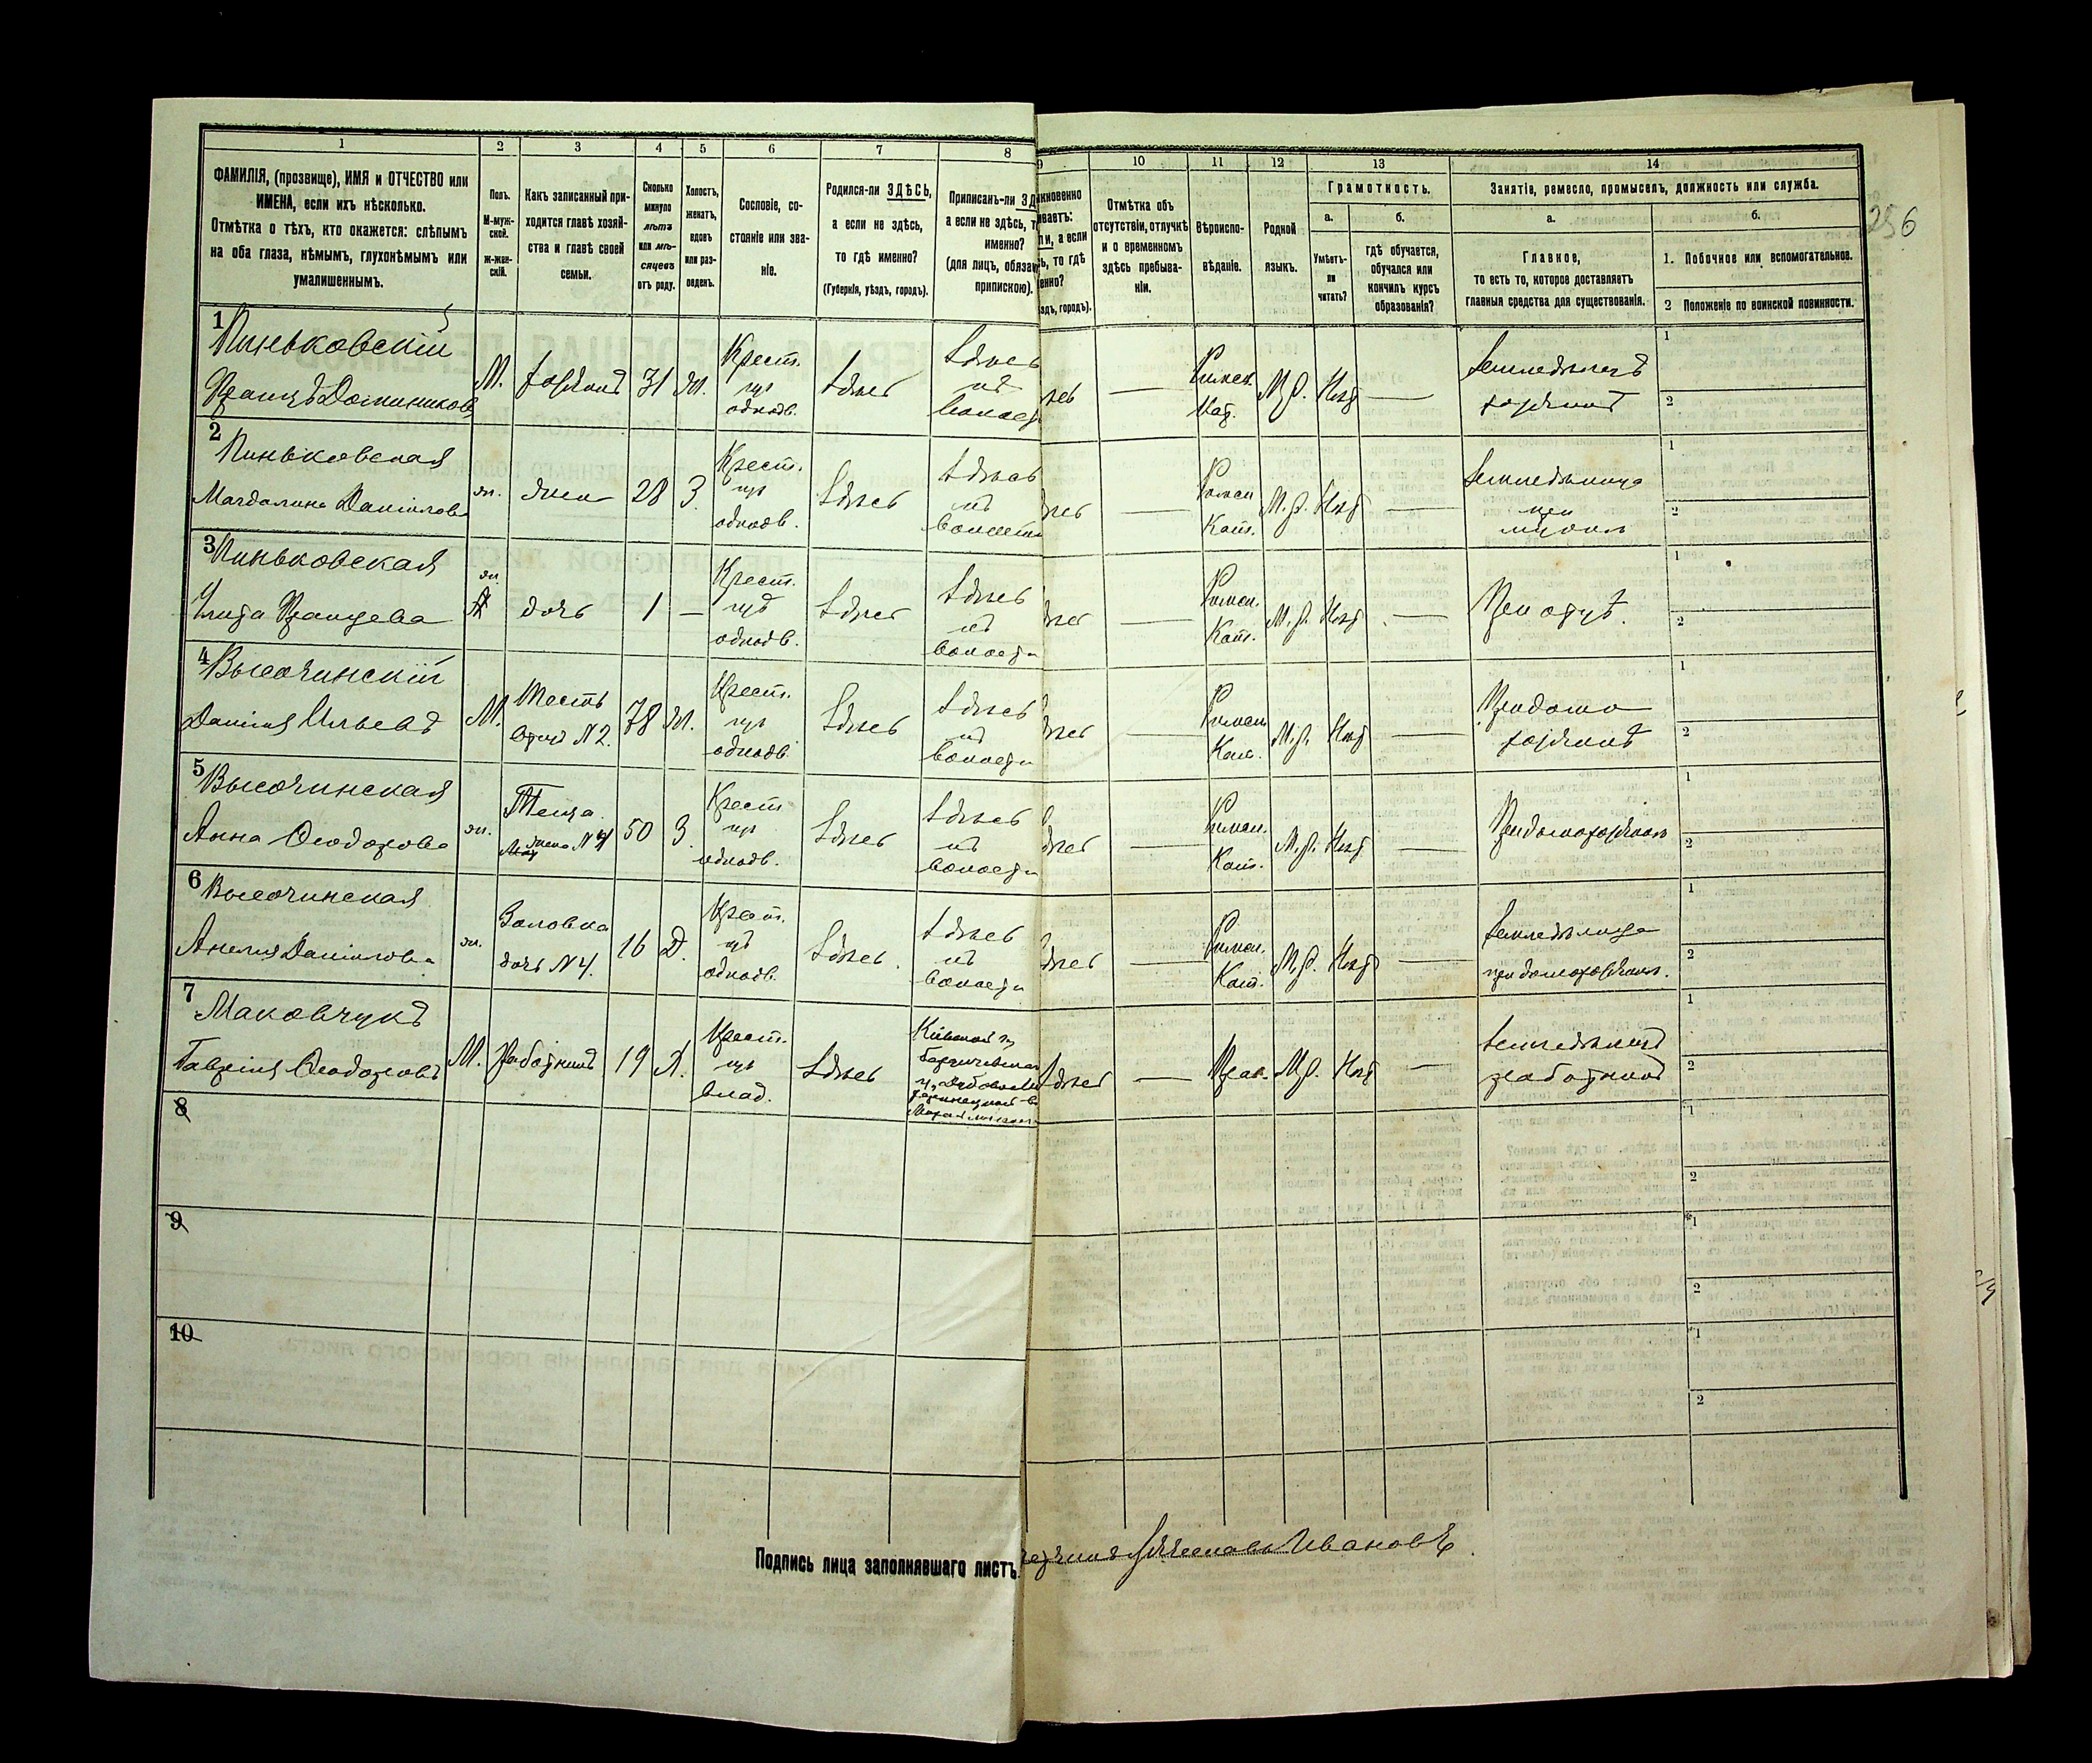 1 2 3 4 5 6 7 8
ФАМИЛІЯ, (прозвище), ИМЯ и ОТЧЕСТВО или
ИМЕНА, если ихъ нѣсколько.
Отмѣтка о тѣхъ, кто окажется: слѣпымъ
на оба глаза, нѣмымъ, глухонѣмымъ или
умалишеннымъ.
Полъ.
М-муж-
ской.
ж-жен-
скій.
Какъ записанный при-
ходится главѣ хозяй-
ства и главѣ своей
семьи.
Сколько
минуло
лѣтъ
или мѣ-
сяцевъ
отъ роду.
Холостъ,
женатъ,
вдовъ
или раз-
веденъ.
Сословіе, со-
стояніе или зва-
ніе.
Родился-ли ЗДѢСЬ,
а если не здѣсь,
то гдѣ именно?
(Губернія, уѣздъ, городъ).
Приписанъ-ли ЗД
а если не здѣсь, т
именно?
(для лицъ, обяза
припискою).
9 10 11 12 13 14
кновенно
ваетъ:
ли, а если
ь, то гдѣ
енно?
здъ, городъ).
Отмѣтка объ
отсутствіи, отлучкѣ
и о временномъ
здѣсь пребыва-
ніи.
Вѣроиспо-
вѣданіе.
Родной
языкъ.
Грамотность.
а. б.
Умѣетъ-
ли
читать?
гдѣ обучается,
обучался или
кончилъ курсъ
образованія?
Занятіе, ремесло, промыселъ, должность или служба.
а. б.
Главное,
то есть то, которое доставляетъ
главныя средства для существованія.
1. Побочное или вспомогательное.
2 Положеніе по воинской повинности.
256
1
Пиньковскій
Францъ Доминиковъ
М. хозяинъ 31 ж.
Крест.
изъ
однодв.
здѣсь
здѣсь
въ
волости
Римск.
Кат.
М.р. Нѣтъ —
Земледѣлецъ
хозяинъ
1
2
2
Пиньковская
Магдалина Даніилова
ж. жена 28 З.
Крест.
изъ
однодв.
здѣсь
здѣсь
въ
волости
Римск
Кат.
М.р. Нѣтъ —
Земледѣлица
при
мужѣ
1
2
3
Пиньковская
Францева
ж. дочь 1 —
Крест.
изъ
однодв.
здѣсь
здѣсь
въ
волости
Римск.
Кат.
М.р. Нѣтъ —
При отцѣ.
1
2
4
Высочинскій
Даніилъ Ильевъ
М.
Тесть
Отецъ N 2.
78 ж.
Крест.
изъ
однодв.
здѣсь
здѣсь
въ
волости
Римск
Кат.
М.р. Нѣтъ —
1
2
5
Высочинская
Анна Ѳеодорова
ж.
Теща
жена N 4
50 З.
Крест
изъ
однодв.
здѣсь
здѣсь
въ
волости
Римск.
Кат.
М.р. Нѣтъ —
1
2
6
Высочинская
Анелія Даніилова
ж.
Золовка
дочь N 4.
16 Д.
Крест.
изъ
однодв.
здѣсь
здѣсь
въ
волости
Римск.
Кат.
М.р. Нѣтъ —
Земледѣлица
1
2
7
Маковчукъ
Гавріилъ Ѳеодоровъ
М. работникъ 19 Х.
Крест.
изъ
влад.
здѣсь
Кіевской г.
здѣсь — Прав. М.р. Нѣтъ —
Земледѣлецъ
работникъ
1
2
8
1
2
9
1
2
10
1
2
Подпись лица заполнявшаго листъ.
Ивановъ